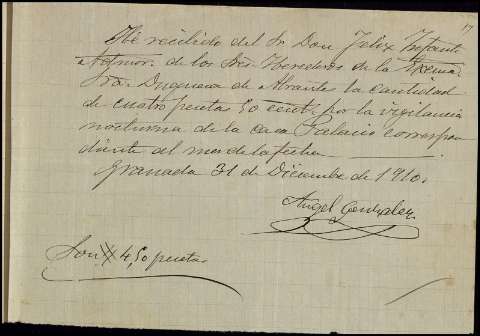 17
He recibido del Sr Don Felix Infante
Admor. de los Sres Herederos de la Excma
Sra. Duquesa de Abrantes la cantidad
de cuatro pesetas 50 cents por la vigilancia
nocturna de la casa Palacio correspon
diente al mes de la fecha
Granada 31 de Diciembre de 1910.
Angel Gonzalez
Son 4,50 pesetas